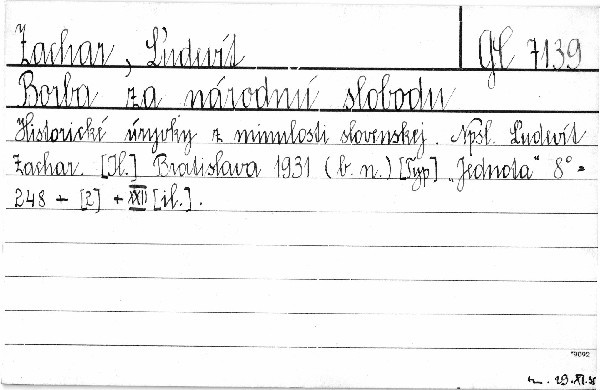 Zachar, Ľudevít
GC 7139
Borba za národnú slobodu
Historické úryvky z minulosti slovenskej. Npsl. Ľudevít
Zachar. [Il.] Bratislava 1931 (b. n.) [Typ] „Jednota“ 8° =
248 + [2] + XXII [il.].